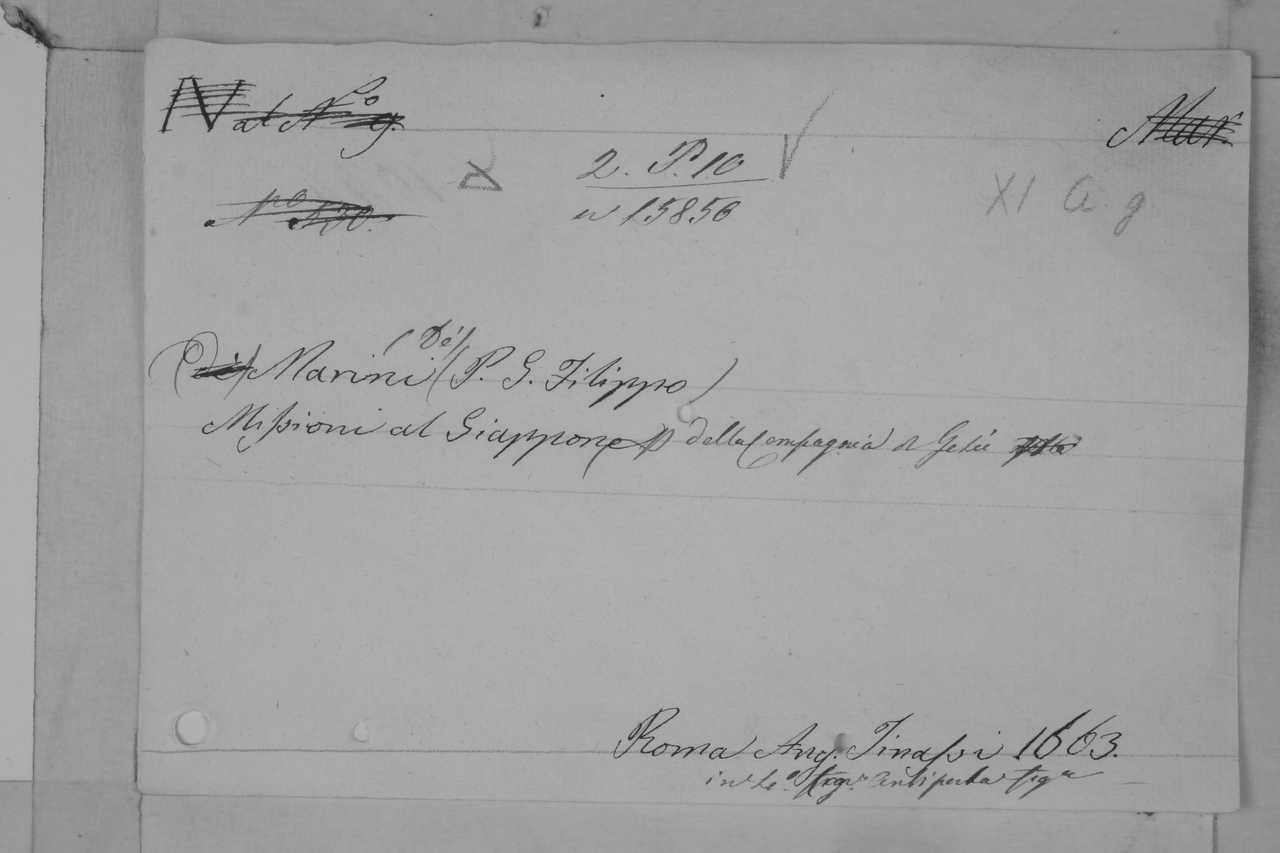 N al N.º 9.
Mar.
2. P. 10
n 15856
XI a. g
N.ro
(De')
Marini (P. G. Filippo)
Missioni al Giappone della Compagnia di Gesù
Roma Ang. Tinassi 1663.
in 4.º antiporta fig.a